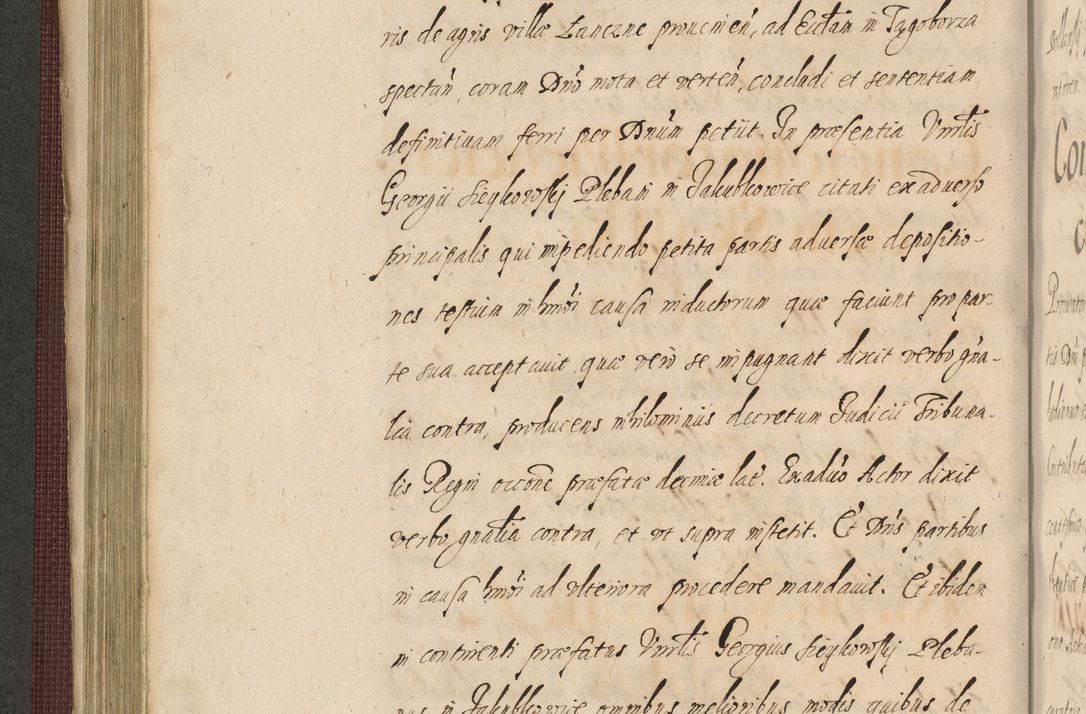 ris de agris villæ Łanczne proueniẽn, ad Eccłam in Tęgoborza
spectań, coram Dno mota et verteń, concludi et sententiam
definitiuam ferri per Dnum petiit. In præsentia Vnrlis
Georgii Sieykowskj Plebani in Jakubkowice citati ex aduerso
principalis qui impediendo petita partis aduersæ depositio-
nes testium in hmoi causa inductorum quæ faciunt pro par-
te sua acceptauit, quæ vero se impugnant dixit verbo gna-
lia contra, producens nihilominus decretum Judicii Tribuna-
lis Regni occone præfatæ decimæ lat. Ex aduo Actor dixit
verbo gnalia contra, et ut supra institit. Et Dns partibus
in causa hmoi ad vlteriora procedere mandauit. Et ibidem
in continenti præfatus Vnrlis Georgius Sieykowskj Pleba-
nus in Jakubkowice omnibus melioribus modis quibus de